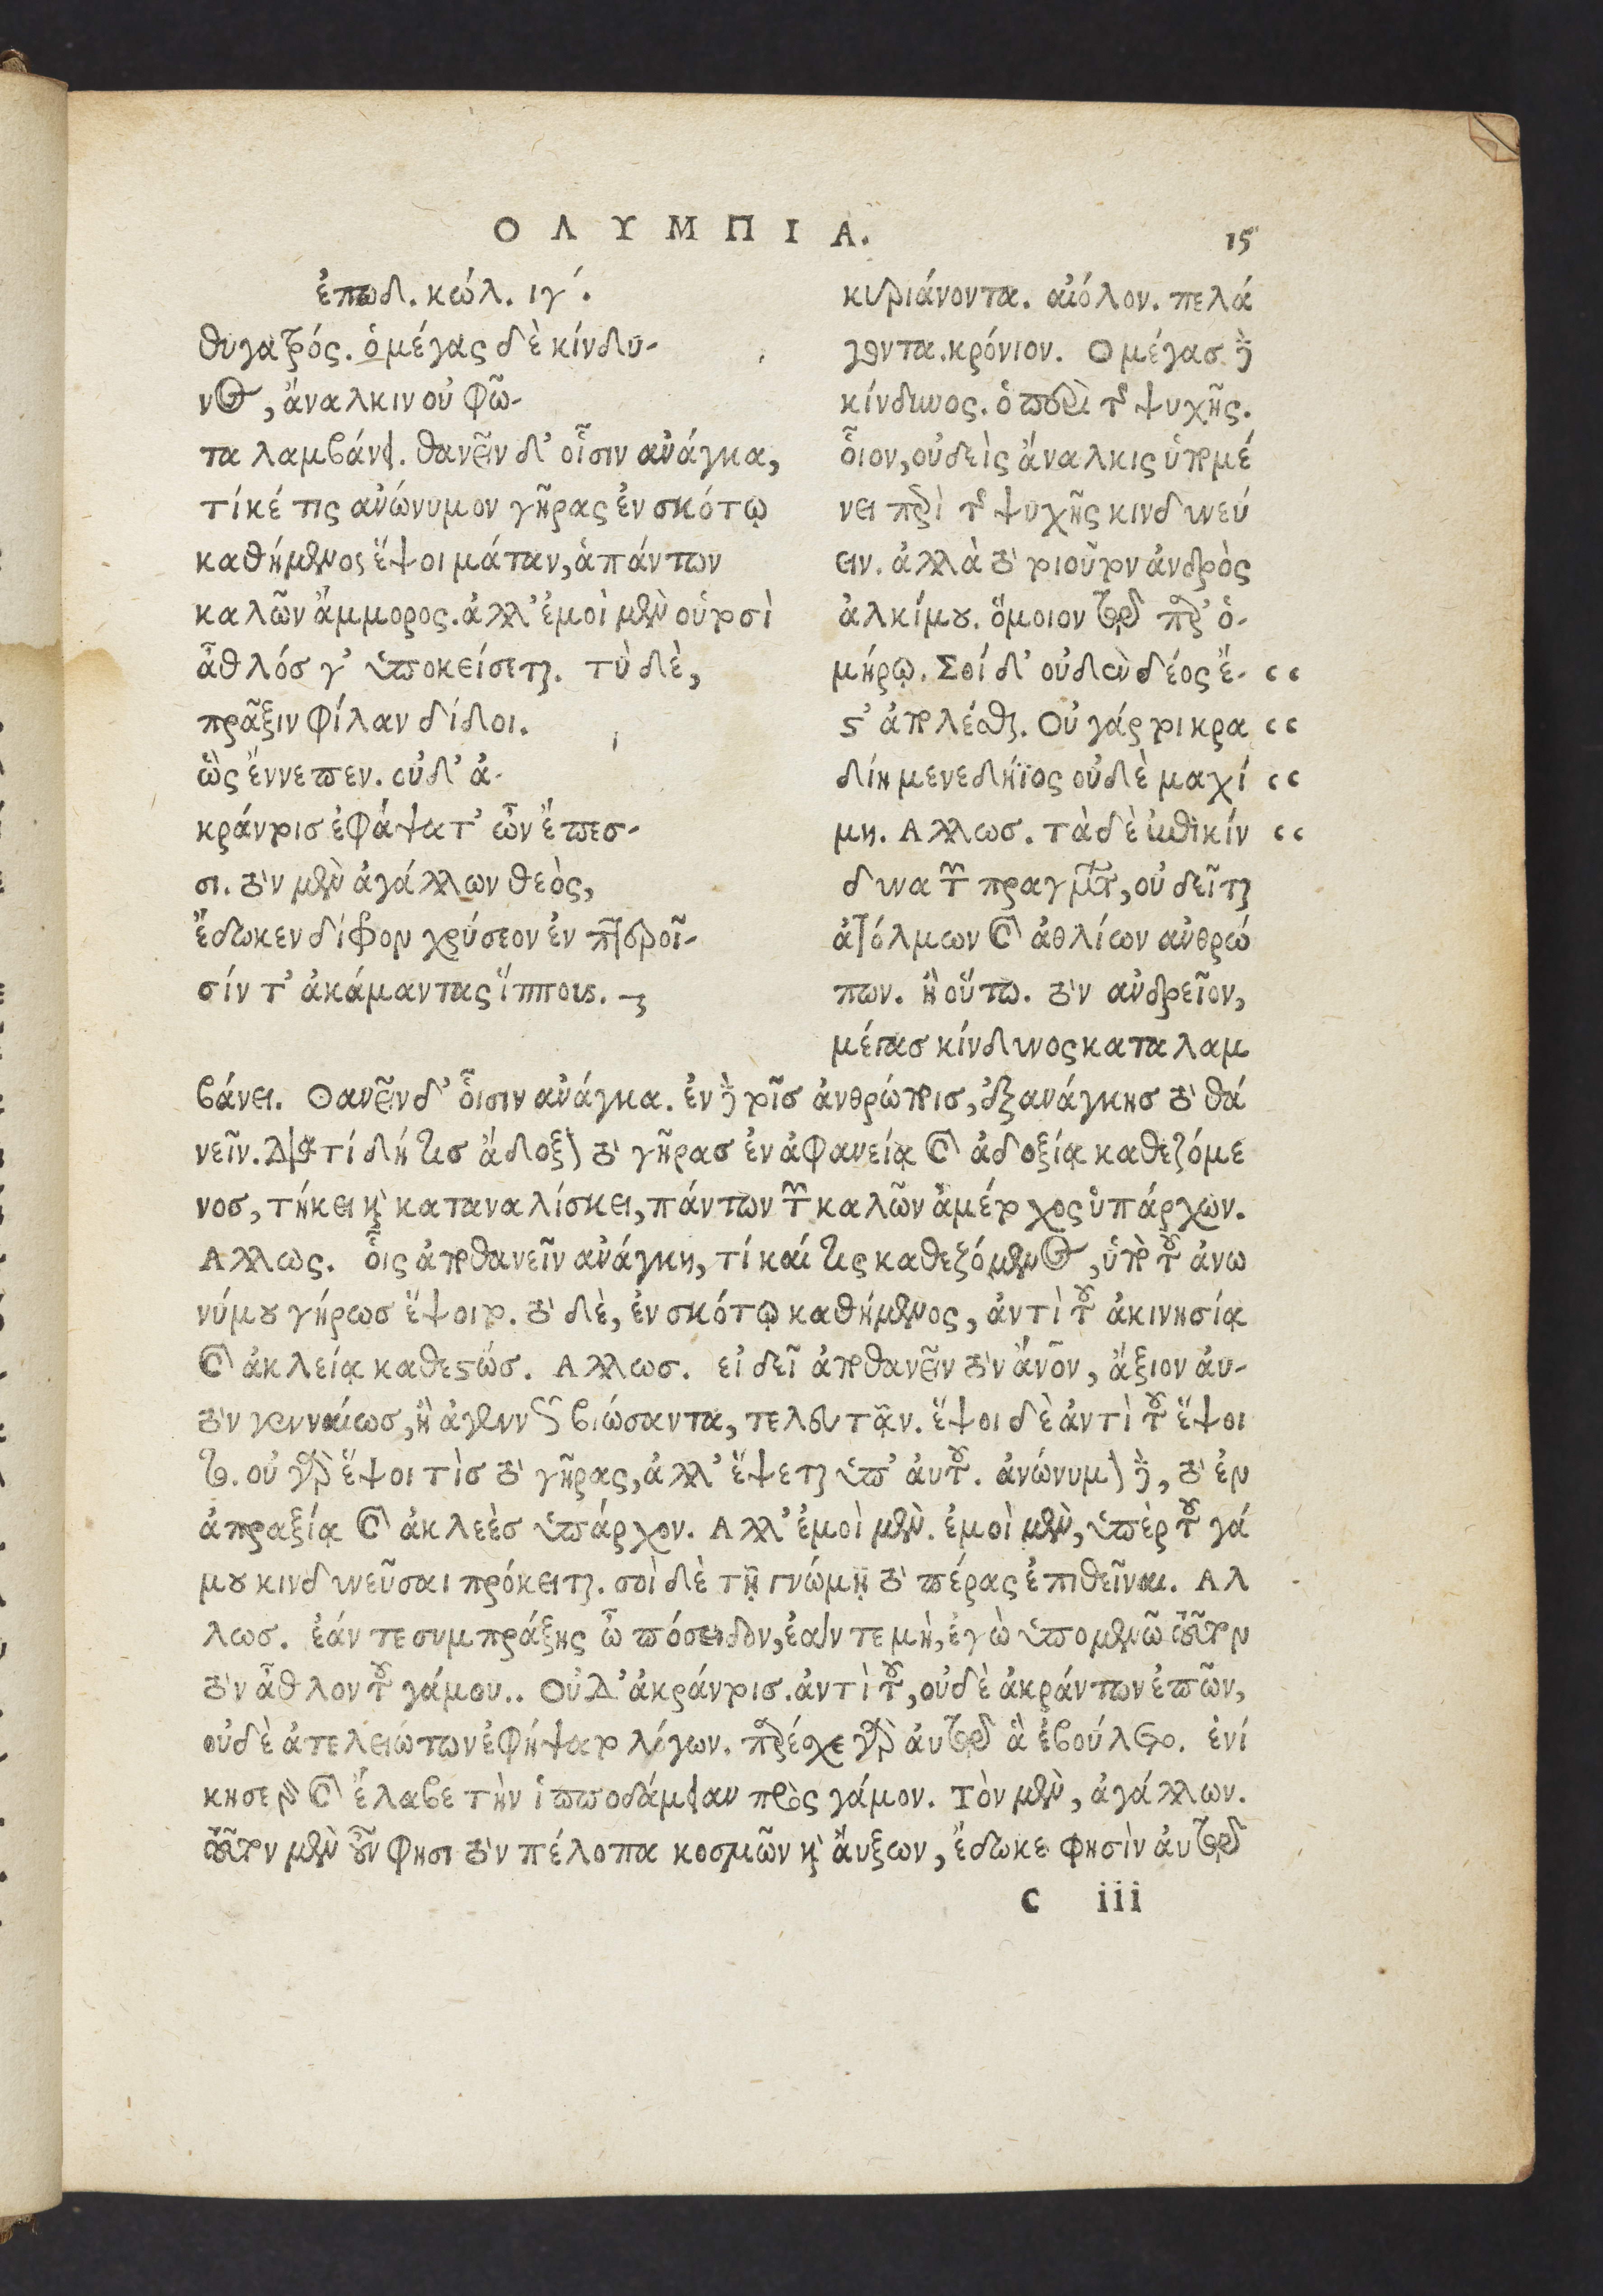 ΟΛΥΜΠΙΑ. 15
ἐπῳδ. κώλ. ιγ΄.
θυγατρός. ὁ μέγας δὲ κίνδυ-
νος, ἄναλκιν οὐ φῶ-
τα λαμβάνει. θανεῖν δ' οἷσιν ἀνάγκα,
τί κέ τις ἀνώνυμον γῆρας ἐν σκότῳ
καθήμενος ἕψοι μάταν, ἁπάντων
καλῶν ἄμμορος. ἀλλ' ἐμοὶ μὲν οὑτοσὶ
ἆθλός γ' ὑποκείσεται. τὺ δὲ,
πρᾶξιν φίλαν δίδοι.
ὣς ἔννεπεν. οὐδ' ἀ-
κράντοισ ἐφάψατ' ὦν ἔπεσ-
σι. τὸν μὲν ἀγάλλων θεὸς,
ἔδωκεν δίφρον χρύσεον ἐν πτεροῖ-
σίν τ' ἀκάμαντας ἵππους.
κυδιάνοντα. αἰόλον. πελά
γοντα. κρόνιον. Ο μέγασ δὲ
κίνδυνος. ὁ περὶ τῆς ψυχῆς.
οἷον, οὐδεὶς ἄναλκις ὑπομέ
νει περὶ τῆς ψυχῆς κινδυνεύ
ειν. ἀλλὰ τὸ τοιοῦτον ἀνδρὸς
ἀλκίμου. ὅμοιον τῷ παρ' ὁ-
μήρῳ. Σοί δ' οὐδὲν δέος ἔ- “
στ' ἀπολέσθαι. Οὐ γάρ τοι κρα “
δίη μενεδήϊος οὐδὲ μαχί “
μη. Αλλωσ. τὰ δὲ ἐπικίν “
δυνα τῶν πραγμάτων, οὐ δεῖται
ἀτόλμων καὶ ἀθλίων ἀνθρώ
πων. ἢ οὕτω. τὸν ἀνδρεῖον,
μέγασ κίνδυνος καταλαμ
βάνει. Θανεῖν δ' οἷσιν ἀνάγκα. ἐν δὲ τοῖσ ἀνθρώποισ, ἐξανάγκησ τὸ θα
νεῖν. Διατί δή τισ ἄδοξον τὸ γῆρασ ἐν ἀφανείᾳ καὶ ἀδοξίᾳ καθεζόμε
νοσ, τήκει καὶ καταναλίσκει, πάντων τῶν καλῶν ἀμέτοχος ὑπάρχων.
Αλλως. οἷς ἀποθανεῖν ἀνάγκη, τί καί τις καθεζόμενος, ὑπὸ τοῦ ἀνω
νύμου γήρωσ ἕψοιτο. τὸ δὲ, ἐν σκότῳ καθήμενος, ἀντὶ τοῦ ἀκινησίᾳ
καὶ ἀκλείᾳ καθεστώσ. Αλλωσ. εἰ δεῖ ἀποθανεῖν τὸν ἄνον, ἄξιον αὐ-
τὸν γενναίωσ, ἢ ἀγεννῶς βιώσαντα, τελευτᾷν. ἕψοι δὲ ἀντὶ τοῦ ἕψοι
το. οὐ γὰρ ἕψοι τὶσ τὸ γῆρας, ἀλλ' ἕψεται ὑπ' αὐτοῦ. ἀνώνυμον δὲ, τὸ ἐν
ἀπραξίᾳ καὶ ἀκλεὲσ ὑπάρχον. Αλλ' ἐμοὶ μὲν. ἐμοὶ μὲν, ὑπὲρ τοῦ γά
μου κινδυνεῦσαι πρόκειται. σοὶ δὲ τῇ γνώμῃ τὸ πέρας ἐπιθεῖναι. Αλ
λωσ. ἐάν τε συμπράξης ὦ πόσειδον, ἐάν τε μὴ, ἐγὼ ὑπομενῶ τοῦτον
τὸν ἆθλον τοῦ γάμου.. Οὐδ' ἀκράντοισ. ἀντὶ τοῦ, οὐδὲ ἀκράντων ἐπῶν,
οὐδὲ ἀτελειώτων ἐφήψατο λόγων. παρέσχε γὰρ αὐτῷ ἃ ἐβούλετο. ἐνί
κησε γὰρ καὶ ἔλαβε τὴν ἱπποδάμειαν πρὸς γάμον. Τὸν μὲν, ἀγάλλων.
τοῦτον μὲν οὖν φησι τὸν πέλοπα κοσμῶν καὶ ἄυξων, ἔδωκε φησὶν αὐτῷ
C iii